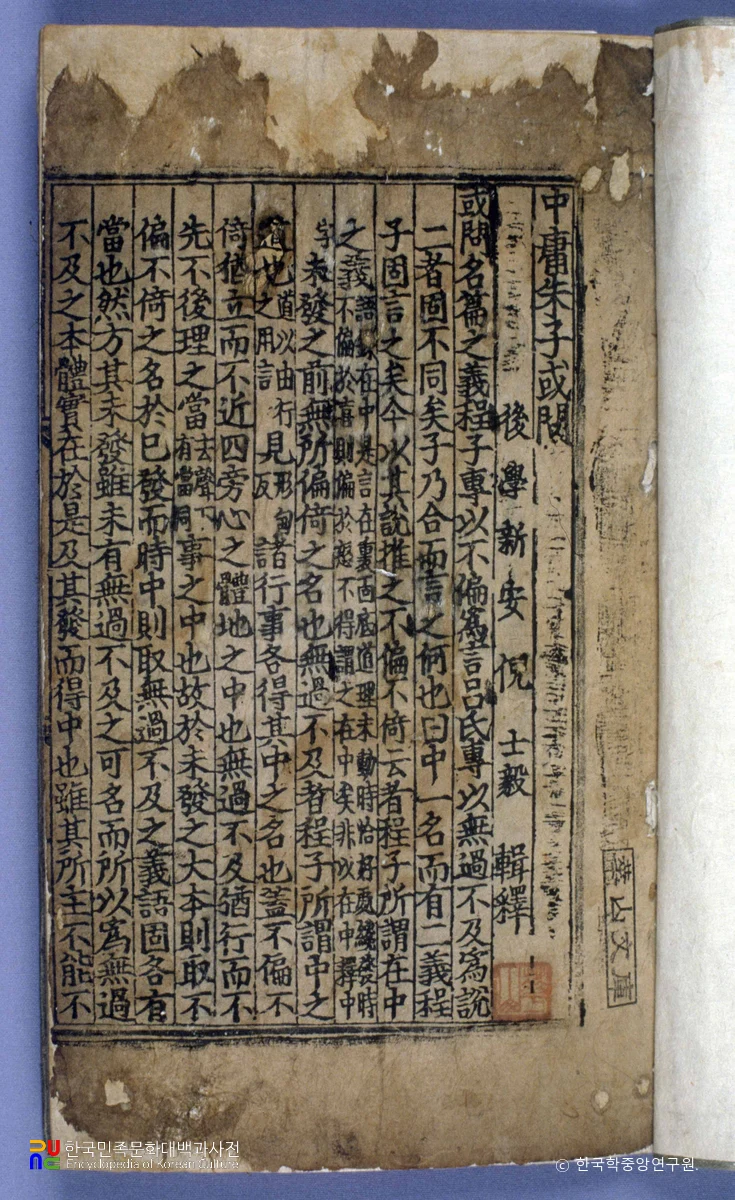 中庸朱子或問
後學新安倪士毅輯釋
或問名篇之義程子專以不偏爲言呂氏專以無過不及爲說
二者固不同矣子乃合而言之何也曰中一名而有二義程
子固言之矣今以其說推之不偏不倚云者程子所謂在中
之義語錄在中是言在裏面底道理未動時恰好處纔發時不偏於喜則偏於怒不得謂之在中矣非以在中釋中
字未發之前無所偏倚之名也無過不及者程子所謂中之
道也道以由行之用言見形甸反諸行事各得其中之名也蓋不偏不
倚猶立而不近四旁心之體地之中也無過不及猶行而不
先不後理之當去聲下有當同事之中也故於未發之大本則取不
偏不倚之名於已發而時中則取無過不及之義語固各有
當也然方其未發雖未有無過不及之可名而所以爲無過
不及之本體實在於是及其發而得中也雖其所主不能不
山文庫
한국민족문화대백과사전
Encyclopedia of Korean Culture
© 한국학중앙연구원